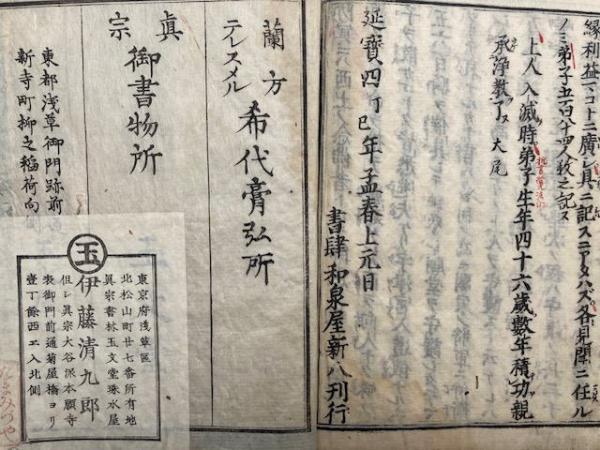 縁利益マコトニ廣シ具ニ記スニアタハズ各見聞ニ任ル
ノミ弟子五百八十四人敘之記ス
上人入滅時弟子生年四十六歳數年積功親
承浄教了ス 大尾
延寶四丁巳年孟春上元日
書肆和泉屋新八刊行
蘭方
テレスメル
希代膏弘所
眞宗
御書物所
東都浅草御門跡前
新寺町柳之稲荷向
玉
伊藤清九郎
東京府浅草區
北松山町廿七番所有地
眞宗書林玉文堂珠水屋
但シ眞宗大谷派本願寺
表御門前通菊屋橋ヨリ
壹丁餘西エ入北側